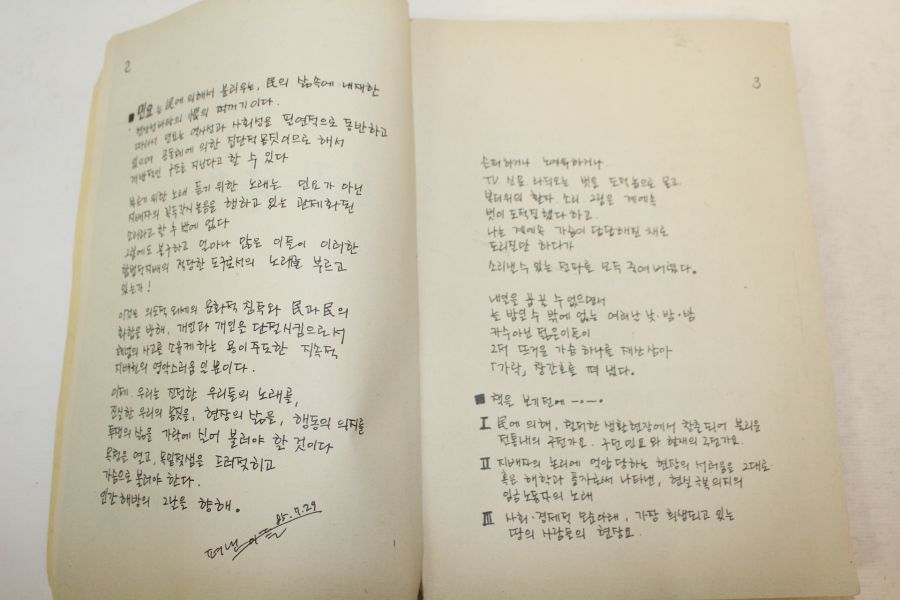 2
■ 민요는 民에 의해서 불리우는, 民의 삶속에 내재한
현장성바탕의 恨의 찌꺼기이다.
따라서 민요는 역사성과 사회성을 필연적으로 동반하고
있으며 공동체에 의한 집단적 몸짓이므로 해서
개방적인 구조를 지닌다고 할 수 있다
부르기 위한 노래 듣기 위한 노래는 민요가 아닌
지배자의 꼭둑각시 놀음을 행하고 있는 관제화된
소리라고 할 수 밖에 없다
그럼에도 불구하고 얼마나 많은 이들이 이러한
합법적지배의 적당한 도구로서의 노래를 부르고
있는가!
이것은 의도적 외세의 문화적 침투와 民과 民의
화합을 방해, 개인과 개인을 단절시킴으로서
체념의 사고를 소유케하는 용이주도한 지속적
지배원의 영악스러움 일뿐이다.
이제 우리는 진정한 우리들의 노래를,
진실한 우리의 몸짓을, 현장의 삶을, 행동의 의지를
투쟁의 삶을 가락에 실어 불러야 할 것이다
목청을 열고, 목밑젖샘을 드러젖히고
가슴으로 불러야 한다.
인간해방의 그날을 향해.
85.7.29
펴낸 이들
3
손피하거나 노여워하거나
TV 신문 라디오는 벗을 도적놈으로 몰고
브라워의 활자, 소리, 그림은 계속
벗이 도적질했다 하고
나는 계속 가슴이 답답해진 채로
도리질만 하다가
소리낼 수 있는 친구를 모두 죽여 버렸다.
내일을 꿈꿀 수 없으면서
늘 밤일 수 밖에 없는 여러난 낮·밤·밤
가수아닌 젊은이들이
그저 뜨거운 가슴 하나를 재산삼아
「가락」 창간호를 펴 냈다.
■ 책을 보기전에
I 民에 의해, 현저한 생활현장에서 창출되어 불리운
전통내의 구전가요. 구전민요와 현재의 구전가요.
II 지배자의 논리에 억압당하는 현장의 서러움을 그대로
혹은 해학과 풍자로써 나타낸, 현실극복의지의
임금노동자의 노래
III 사회·경제적 모순아래, 가장 희생되고 있는
땅의 사람들의 현장요.